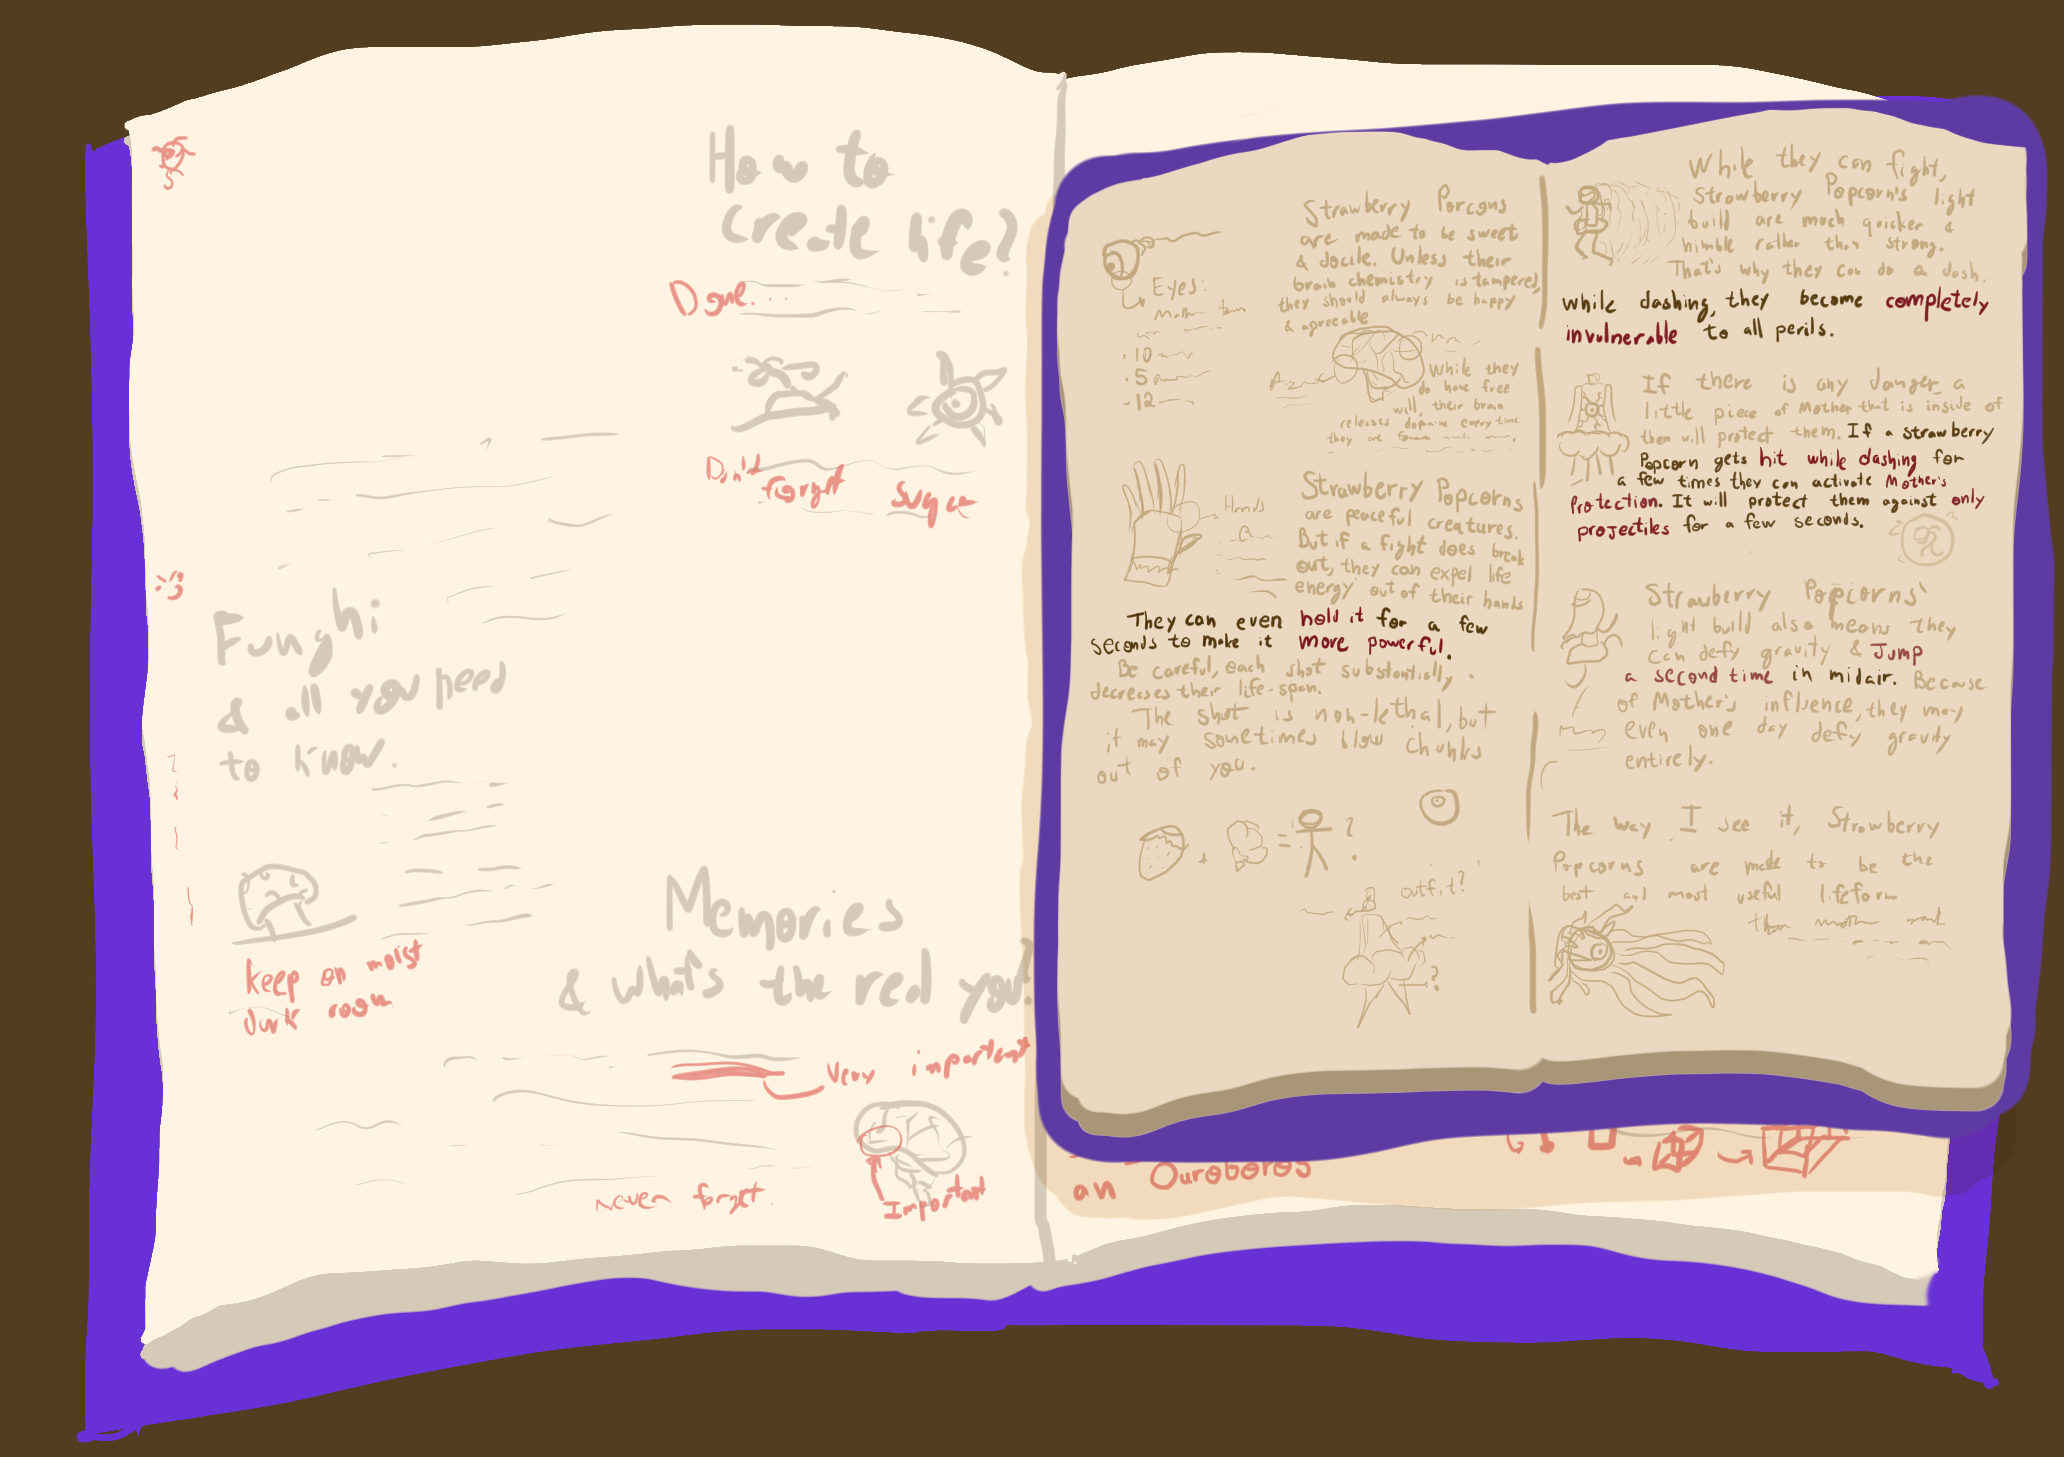 How to
create life?
Done...
Don't
forget sugar
Funghi
& all you need
to know.
keep on moist
dark room
Memories
& what's the real you?
Very important
Never forget
Important
Eyes:
10
5
12
Strawberry Porcons
are made to be sweet
& docile. Unless their
brain chemistry is tampered,
they should always be happy
& agreeable
While they
do have free
will, their brain
releases dopamine everytime
they are
Hands
Strawberry Popcorns
are peaceful creatures.
But if a fight does break
out, they can expel life
energy out of their hands
They can even hold it for a few
seconds to make it more powerful.
Be careful, each shot substantially
decreases their life-span.
The shot is non-lethal, but
it may sometimes blow chunks
out of you.
+ = ?
outfit?
?
While they can fight,
Strawberry Popcorn's light
build are much quicker &
nimble rather than strong.
That's why they can do a dash.
While dashing, they become completely
invulnerable to all perils.
If there is any danger a
little piece of Mother that is inside of
them will protect them. If a strawberry
Popcorn gets hit while dashing for
a few times they can activate Mother's
Protection. It will protect them against only
projectiles for a few seconds.
Strawberry Popcorns'
light build also means they
can defy gravity & Jump
a second time in midair. Because
of Mother's influence, they may
even one day defy gravity
entirely.
The way I see it, Strawberry
Popcorns are made to be the
best and most useful lifeform
than mother
an Ouroboros